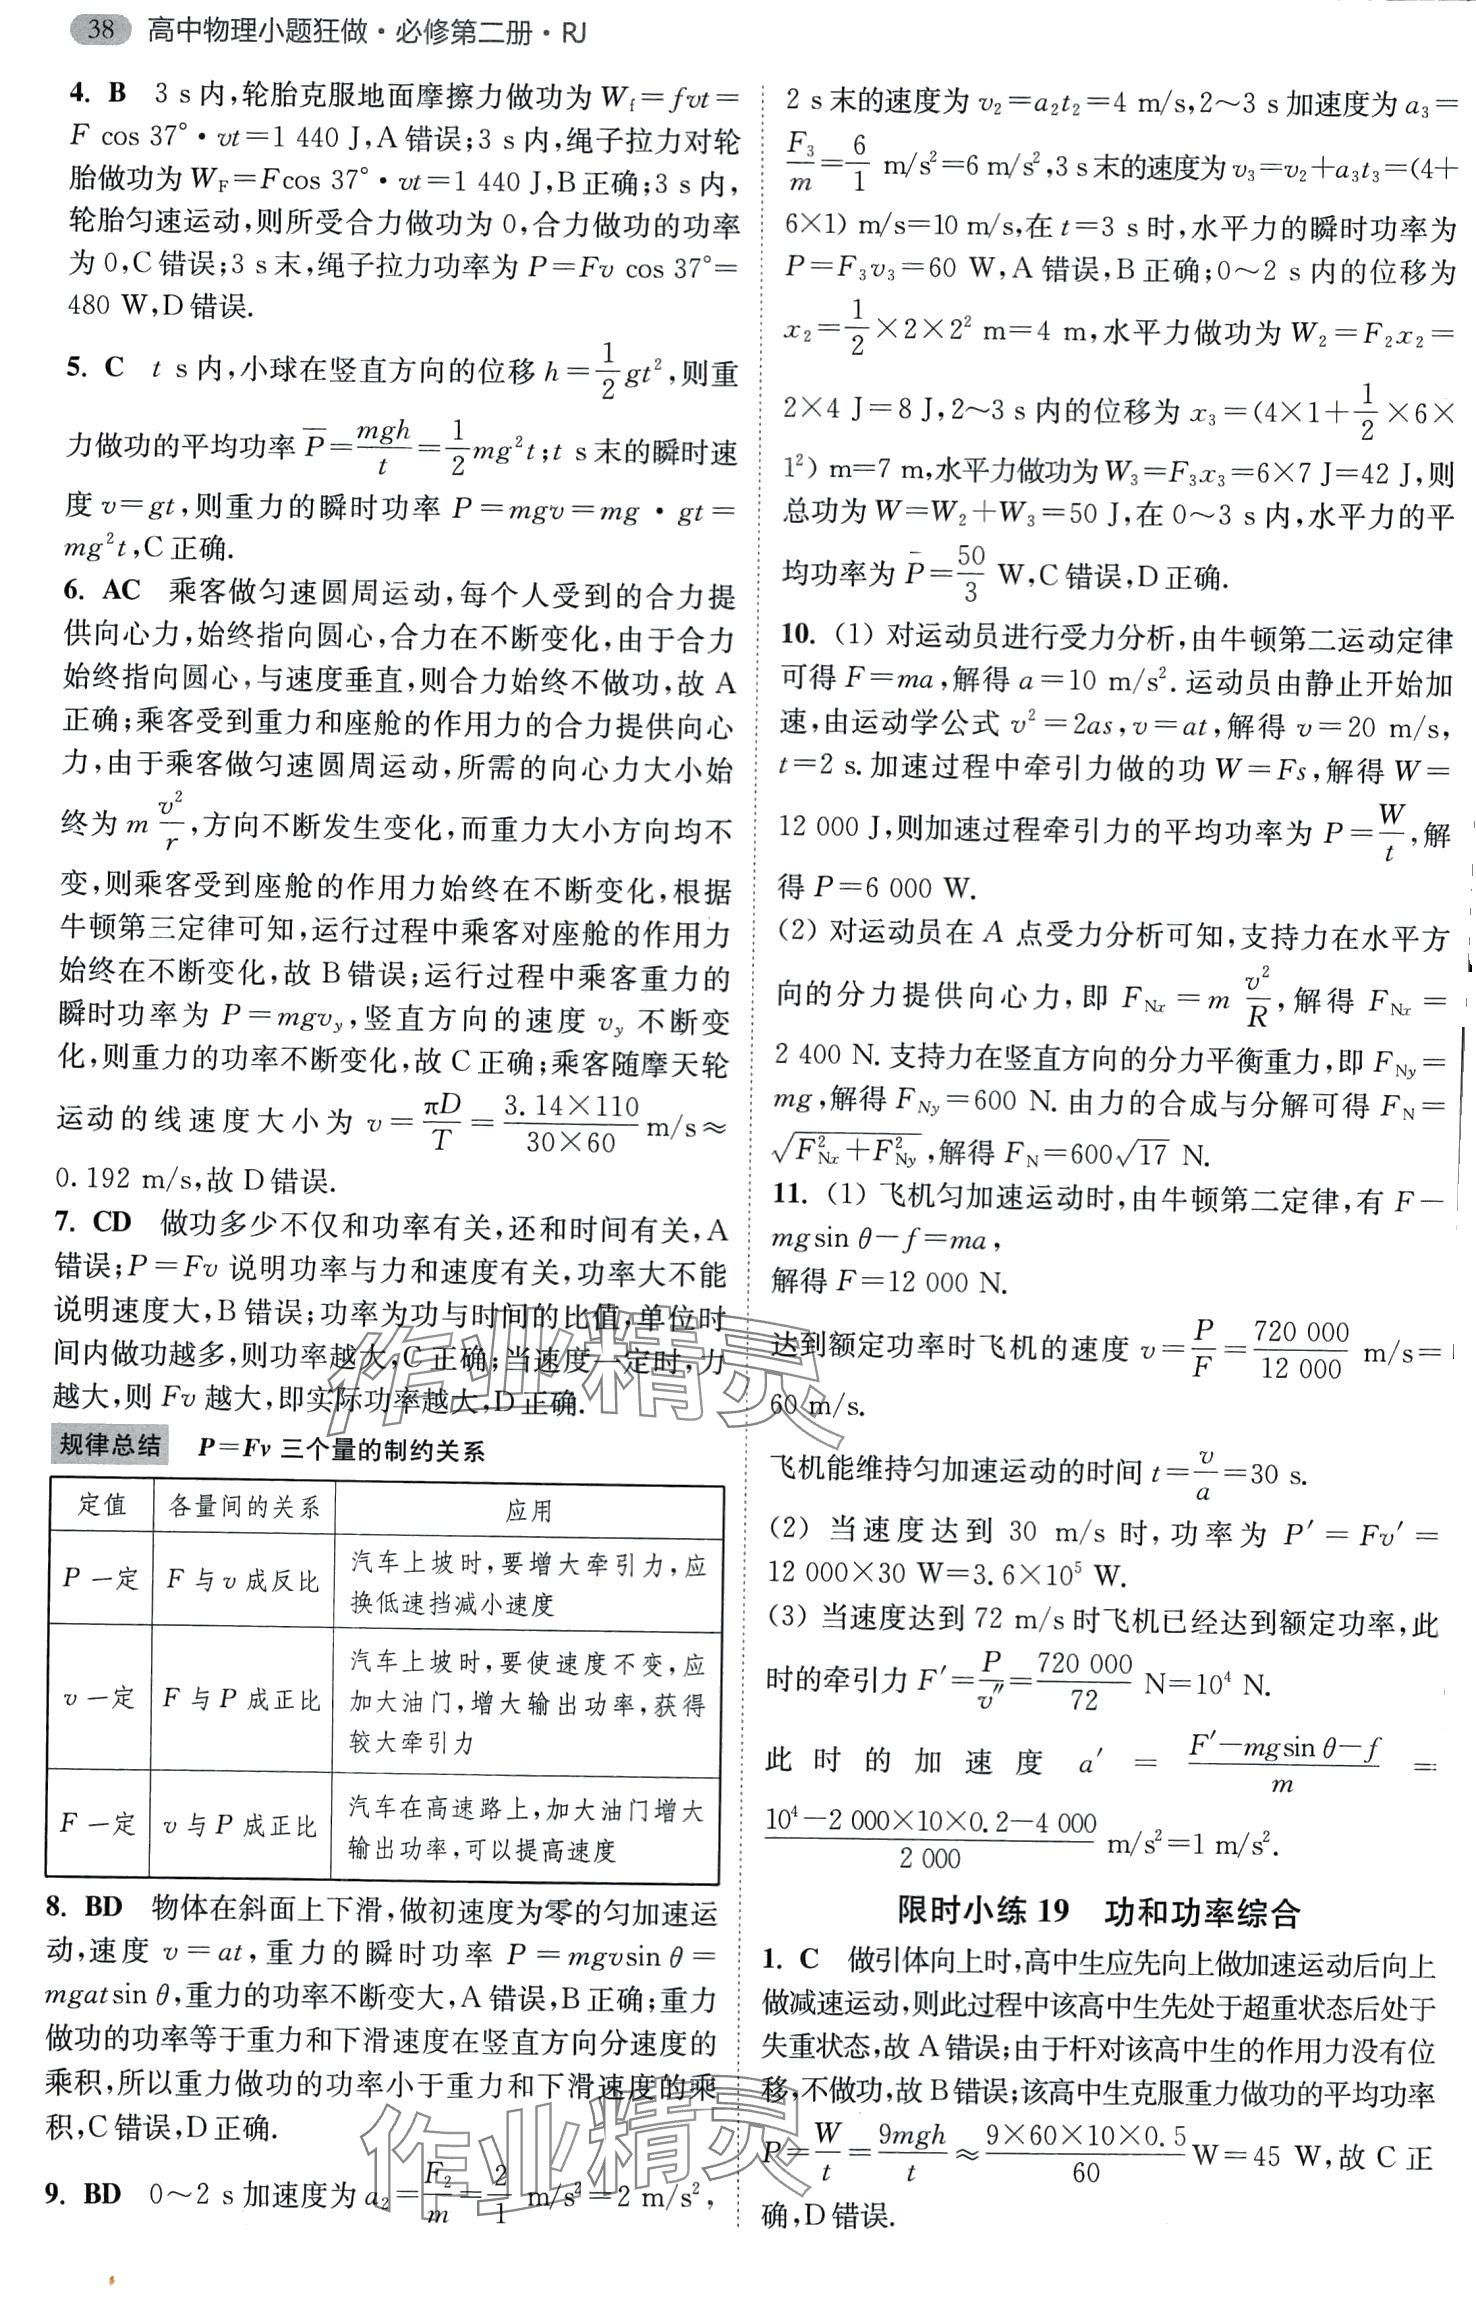 38 高中物理小题狂做·必修第二册·RJ
4. B 3 s内,轮胎克服地面摩擦力做功为 W_f=fvt=
F cos 37°·vt=1 440 J,A错误;3 s内,绳子拉力对轮
胎做功为 W_F=Fcos 37°·vt=1 440 J,B正确;3 s内,
轮胎匀速运动,则所受合力做功为0,合力做功的功率
为0,C错误;3 s末,绳子拉力功率为 P=Fv cos 37°=
480 W,D错误.
5. C t s内,小球在竖直方向的位移 h=1/2 gt²,则重
力做功的平均功率 P̄=mgh/t=1/2 mg²t;t s末的瞬时速
度 v=gt,则重力的瞬时功率 P=mgv=mg·gt=
mg²t,C正确.
6. AC 乘客做匀速圆周运动,每个人受到的合力提
供向心力,始终指向圆心,合力在不断变化,由于合力
始终指向圆心,与速度垂直,则合力始终不做功,故A
正确;乘客受到重力和座舱的作用力的合力提供向心
力,由于乘客做匀速圆周运动,所需的向心力大小始
终为 m v²/r,方向不断发生变化,而重力大小方向均不
变,则乘客受到座舱的作用力始终在不断变化,根据
牛顿第三定律可知,运行过程中乘客对座舱的作用力
始终在不断变化,故B错误;运行过程中乘客重力的
瞬时功率为 P=mgv_y,竖直方向的速度 v_y 不断变
化,则重力的功率不断变化,故C正确;乘客随摩天轮
运动的线速度大小为 v=πD/T=3.14×110/30×60 m/s≈
0.192 m/s,故D错误.
7. CD 做功多少不仅和功率有关,还和时间有关,A
错误;P=Fv 说明功率与力和速度有关,功率大不能
说明速度大,B错误;功率为功与时间的比值,单位时
间内做功越多,则功率越大,C正确;当速度一定时,力
越大,则 Fv 越大,即实际功率越大,D正确.
规律总结 P=Fv 三个量的制约关系
定值 各量间的关系 应用
P 一定 F 与 v 成反比 汽车上坡时,要增大牵引力,应
换低速挡减小速度
v 一定 F 与 P 成正比 汽车上坡时,要使速度不变,应
加大油门,增大输出功率,获得
较大牵引力
F 一定 v 与 P 成正比 汽车在高速路上,加大油门增大
输出功率,可以提高速度
8. BD 物体在斜面上下滑,做初速度为零的匀加速运
动,速度 v=at,重力的瞬时功率 P=mgvsin θ=
mgatsin θ,重力的功率不断变大,A错误,B正确;重力
做功的功率等于重力和下滑速度在竖直方向分速度的
乘积,所以重力做功的功率小于重力和下滑速度的乘
积,C错误,D正确.
9. BD 0～2 s加速度为 a₂=F₂/m=2/1 m/s²=2 m/s²,
2 s末的速度为 v₂=a₂t₂=4 m/s,2～3 s加速度为 a₃=
F₃/m=6/1 m/s²=6 m/s²,3 s末的速度为 v₃=v₂+a₃t₃=(4+
6×1) m/s=10 m/s,在 t=3 s时,水平力的瞬时功率为
P=F₃v₃=60 W,A错误,B正确;0～2 s内的位移为
x₂=1/2×2×2² m=4 m,水平力做功为 W₂=F₂x₂=
2×4 J=8 J,2～3 s内的位移为 x₃=(4×1+1/2×6×
1²) m=7 m,水平力做功为 W₃=F₃x₃=6×7 J=42 J,则
总功为 W=W₂+W₃=50 J,在0～3 s内,水平力的平
均功率为 P̄=50/3 W,C错误,D正确.
10. (1) 对运动员进行受力分析,由牛顿第二运动定律
可得 F=ma,解得 a=10 m/s².运动员由静止开始加
速,由运动学公式 v²=2as,v=at,解得 v=20 m/s,
t=2 s.加速过程中牵引力做的功 W=Fs,解得 W=
12 000 J,则加速过程牵引力的平均功率为 P=W/t,解
得 P=6 000 W.
(2) 对运动员在 A 点受力分析可知,支持力在水平方
向的分力提供向心力,即 F_Nx=m v²/R,解得 F_Nx=
2 400 N.支持力在竖直方向的分力平衡重力,即 F_Ny=
mg,解得 F_Ny=600 N.由力的合成与分解可得 F_N=
√(F²_Nx+F²_Ny),解得 F_N=600√17 N.
11. (1) 飞机匀加速运动时,由牛顿第二定律,有 F-
mgsin θ-f=ma,
解得 F=12 000 N.
达到额定功率时飞机的速度 v=P/F=720 000/12 000 m/s=
60 m/s.
飞机能维持匀加速运动的时间 t=v/a=30 s.
(2) 当速度达到 30 m/s 时,功率为 P′=Fv′=
12 000×30 W=3.6×10⁵ W.
(3) 当速度达到 72 m/s 时飞机已经达到额定功率,此
时的牵引力 F′=P/v″=720 000/72 N=10⁴ N.
此时的加速度 a′=(F′-mgsin θ-f)/m=
(10⁴-2 000×10×0.2-4 000)/2 000 m/s²=1 m/s².
限时小练19 功和功率综合
1. C 做引体向上时,高中生应先向上做加速运动后向上
做减速运动,则此过程中该高中生先处于超重状态后处于
失重状态,故A错误;由于杆对该高中生的作用力没有位
移,不做功,故B错误;该高中生克服重力做功的平均功率
P=W/t=9mgh/t≈9×60×10×0.5/60 W=45 W,故C正
确,D错误.
作业精灵
作业精灵